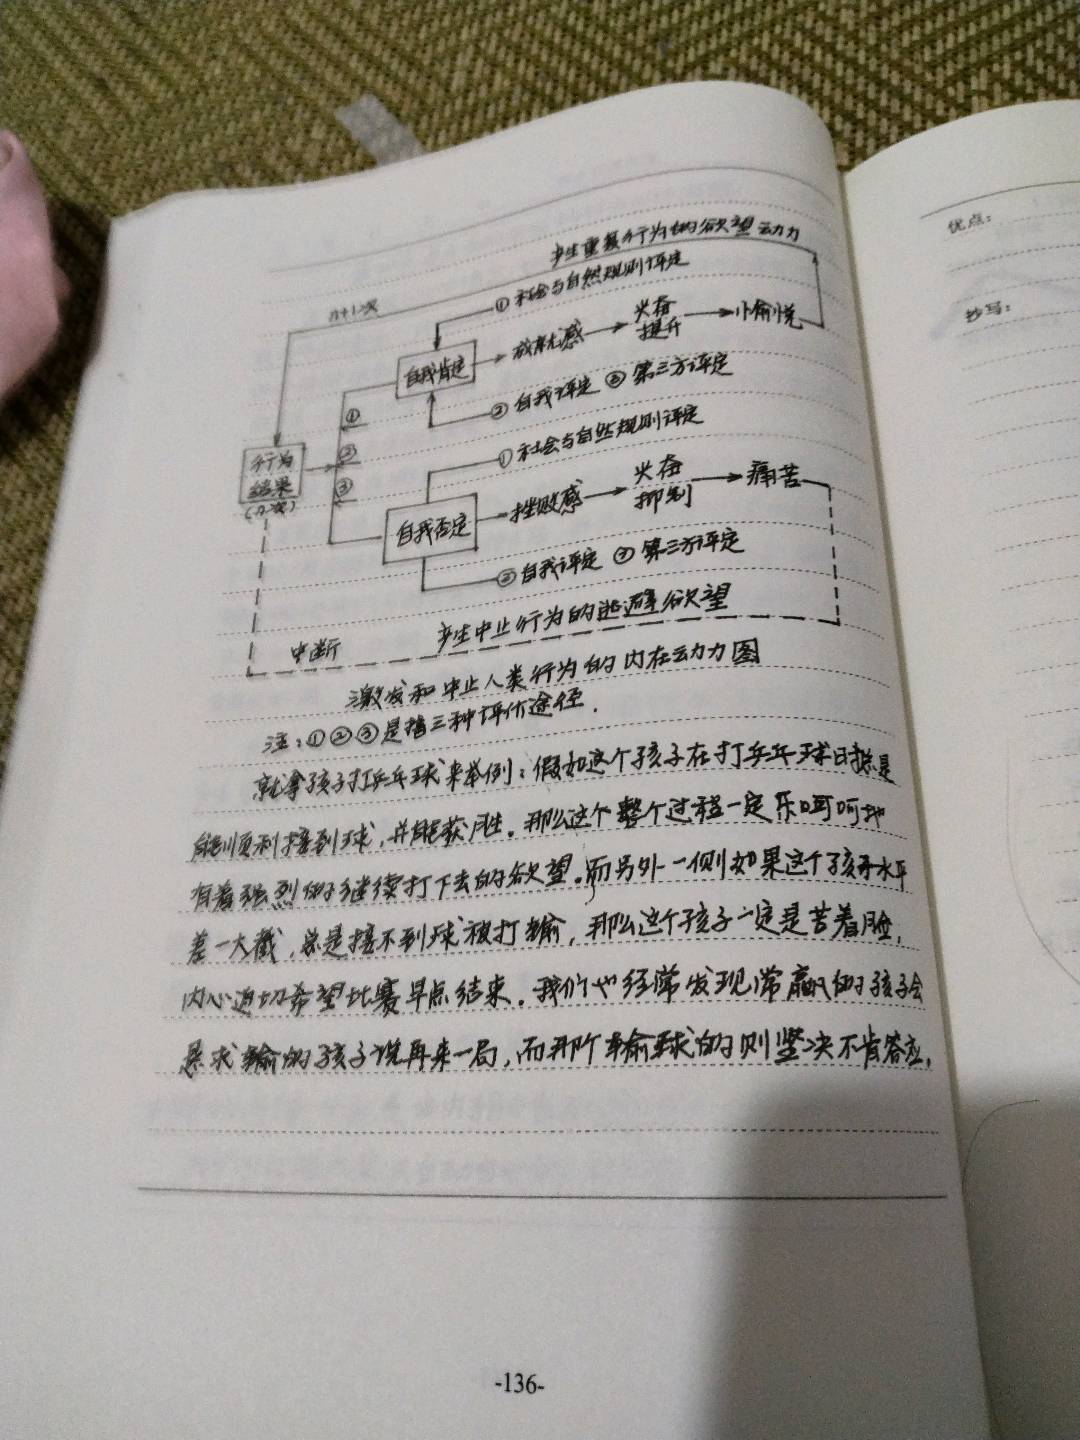 产生重复行为的欲望动力
n+1次
①社会与自然规则评定
自我肯定
成就感
兴奋
提升
心愉悦
②自我评定 ③第三方评定
①
②
③
行为
结果
(n次)
①社会与自然规则评定
自我否定
挫败感
兴奋
抑制
痛苦
②自我评定 ③第三方评定
中断
产生中止行为的逃避欲望
激发和中止人类行为的内在动力图
注:①②③是指三种评价途径.
就拿孩子打乒乓球来举例:假如这个孩子在打乒乓球时总是
能顺利接到球,并能获胜.那么这个整个过程一定乐呵呵地
有着强烈的继续打下去的欲望.而另外一侧如果这个孩子水平
差一大截,总是接不到球被打输,那么这个孩子一定是苦着脸,
内心迫切希望比赛早点结束.我们也经常发现常赢的孩子会
恳求输的孩子说再来一局,而那个输球的则坚决不肯答应,
-136-
优点:
抄写: